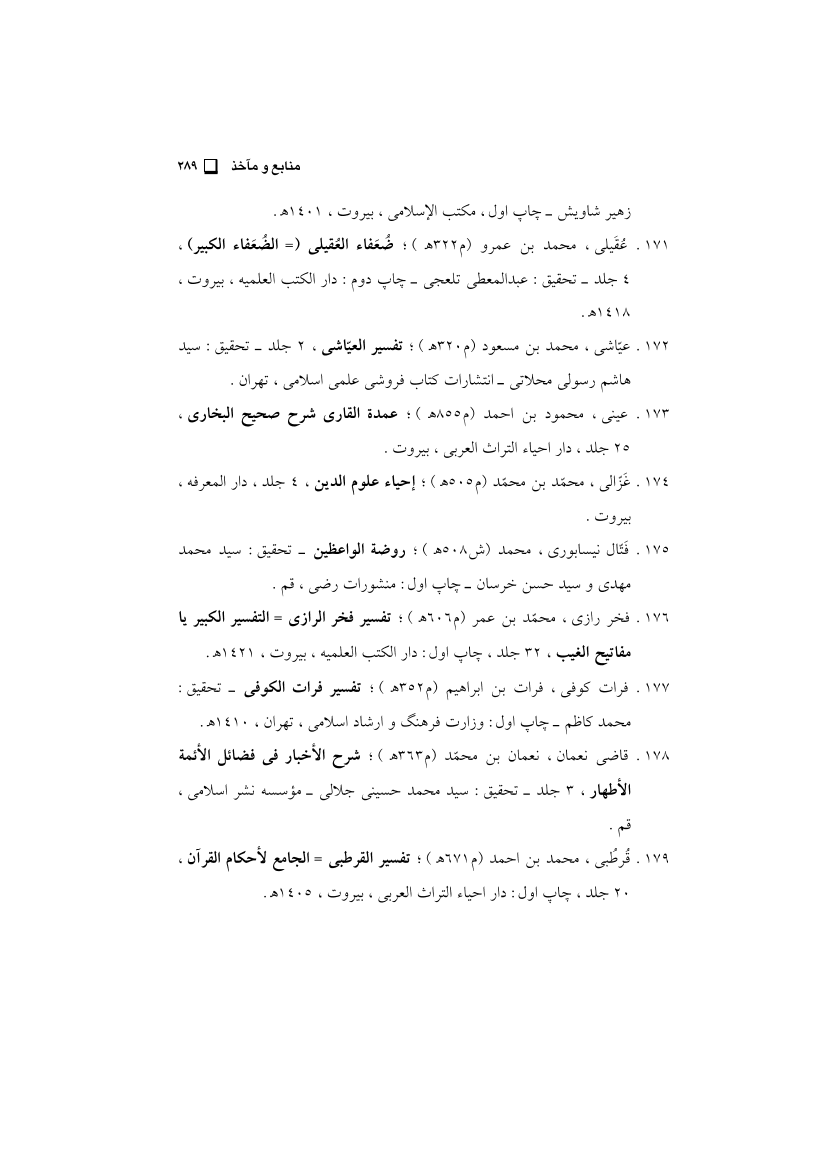 منابع و مآخذ ❏ ۲۸۹
زهیر شاویش ـ چاپ اول ، مکتب الإسلامی ، بیروت ، ١٤٠١ﻫ .
١٧١ . عُقَیلی ، محمد بن عمرو (م٣٢٢ﻫ ) ؛ ضُعَفاء العُقیلی (= الضُعَفاء الکبیر) ،
٤ جلد ـ تحقیق : عبدالمعطی تلعجی ـ چاپ دوم : دار الکتب العلمیه ، بیروت ،
١٤١٨ﻫ .
١٧٢ . عیّاشی ، محمد بن مسعود (م٣٢٠ﻫ ) ؛ تفسیر العیّاشی ، ٢ جلد ـ تحقیق : سید
هاشم رسولی محلاتی ـ انتشارات کتاب فروشی علمی اسلامی ، تهران .
١٧٣ . عینی ، محمود بن احمد (م٨٥٥ﻫ ) ؛ عمدة القاری شرح صحیح البخاری ،
٢٥ جلد ، دار احیاء التراث العربی ، بیروت .
١٧٤ . غَزّالی ، محمّد بن محمّد (م٥٠٥ﻫ ) ؛ إحیاء علوم الدین ، ٤ جلد ، دار المعرفه ،
بیروت .
١٧٥ . فَتّال نیسابوری ، محمد (ش٥٠٨ﻫ ) ؛ روضة الواعظین ـ تحقیق : سید محمد
مهدی و سید حسن خرسان ـ چاپ اول : منشورات رضی ، قم .
١٧٦ . فخر رازی ، محمّد بن عمر (م٦٠٦ﻫ ) ؛ تفسیر فخر الرازی = التفسیر الکبیر یا
مفاتیح الغیب ، ٣٢ جلد ، چاپ اول : دار الکتب العلمیه ، بیروت ، ١٤٢١ﻫ .
١٧٧ . فرات کوفی ، فرات بن ابراهیم (م٣٥٢ﻫ ) ؛ تفسیر فرات الکوفی ـ تحقیق :
محمد کاظم ـ چاپ اول : وزارت فرهنگ و ارشاد اسلامی ، تهران ، ١٤١٠ﻫ .
١٧٨ . قاضی نعمان ، نعمان بن محمّد (م٣٦٣ﻫ ) ؛ شرح الأخبار فی فضائل الأئمة
الأطهار ، ٣ جلد ـ تحقیق : سید محمد حسینی جلالی ـ مؤسسه نشر اسلامی ،
قم .
١٧٩ . قُرطُبی ، محمد بن احمد (م٦٧١ﻫ ) ؛ تفسیر القرطبی = الجامع لأحکام القرآن ،
٢٠ جلد ، چاپ اول : دار احیاء التراث العربی ، بیروت ، ١٤٠٥ﻫ .